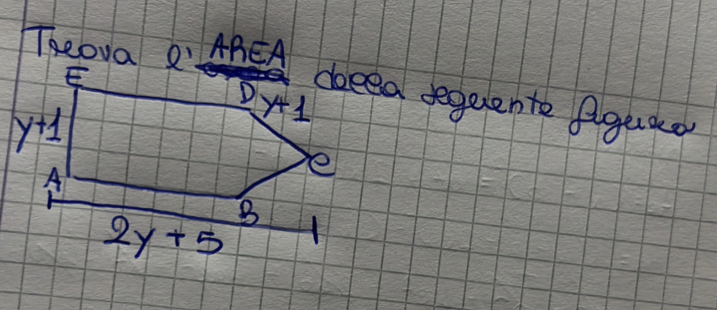 Trova l' AREA della seguente figura
E
D y+1
y+1
C
A
B
2y + 5